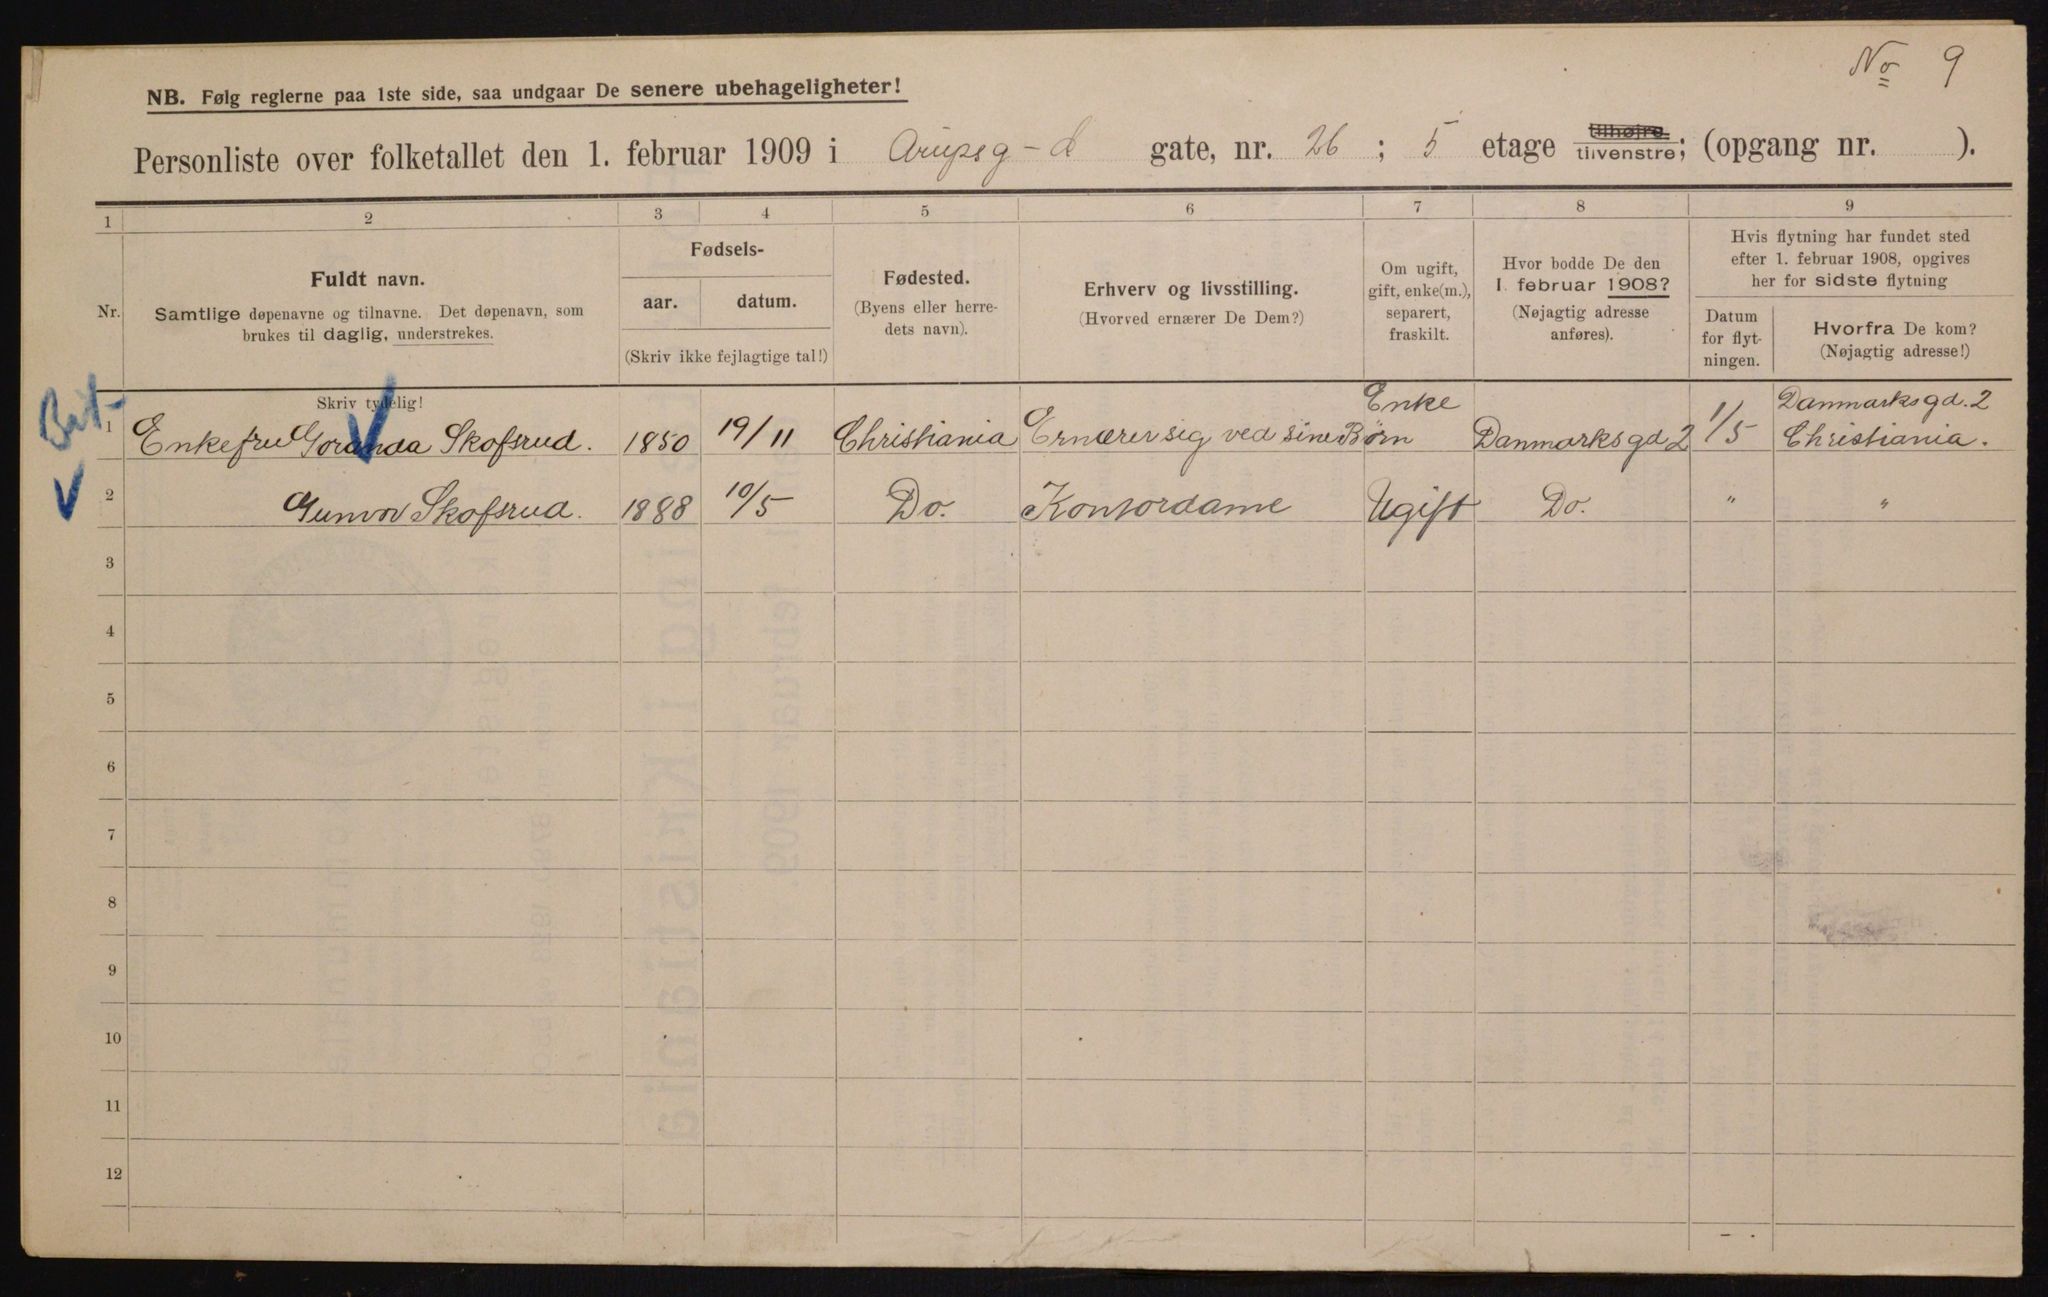 No 9
NB. Følg reglerne paa 1ste side, saa undgaar De senere ubehageligheter!
Personliste over folketallet den 1. februar 1909 i Arupsg-d gate, nr. 26 ; 5 etage tilhøjre tilvenstre; (opgang nr. ).
1 2 3 4 5 6 7 8 9
Nr.
Fuldt navn.
Samtlige døpenavne og tilnavne. Det døpenavn, som
brukes til daglig, understrekes.
Fødsels-
aar. datum.
(Skriv ikke fejlagtige tal!)
Fødested.
(Byens eller herre-
dets navn).
Erhverv og livsstilling.
(Hvorved ernærer De Dem?)
Om ugift,
gift, enke(m.),
separert,
fraskilt.
Hvor bodde De den
1. februar 1908?
(Nøjagtig adresse
anføres).
Hvis flytning har fundet sted
efter 1. februar 1908, opgives
her for sidste flytning
Datum
for flyt-
ningen.
Hvorfra De kom?
(Nøjagtig adresse!)
Skriv tydelig!
Enke Danmarksgd. 2
1 Enkefru Goranda Skofsrud. 1850 19/11 Christiania Ernærer sig ved sine Børn Danmarksgd 2 1/5 Christiania.
2 Gunvor Skofsrud. 1888 10/5 Do. Kontordame Ugift Do. " "
3
4
5
6
7
8
9
10
11
12